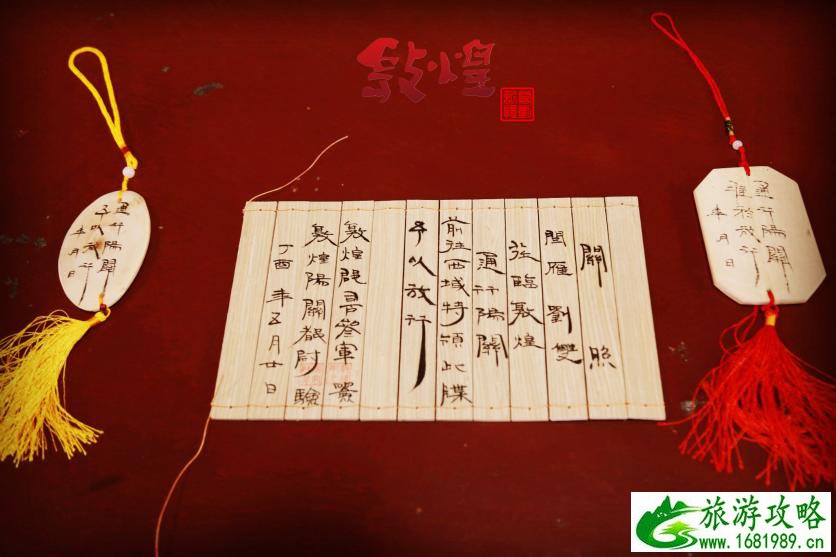 敦煌
關照
閏雁劉雙
從臨敦煌
通行陽關
前往西域特頒此牒
予以放行
敦煌郡司參軍署
敦煌陽關都尉驗
丁酉年五月廿日
通行陽關
予以放行
年月日
通行陽關
准於放行
年月日
旅游攻略
www.1681989.cn